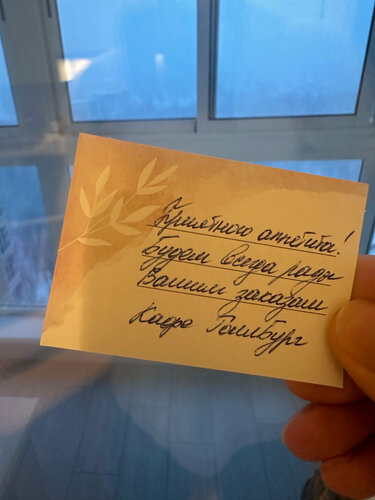 Приятного аппетита!
Будем всегда рады
Вашим заказам
Кафе Гамбург